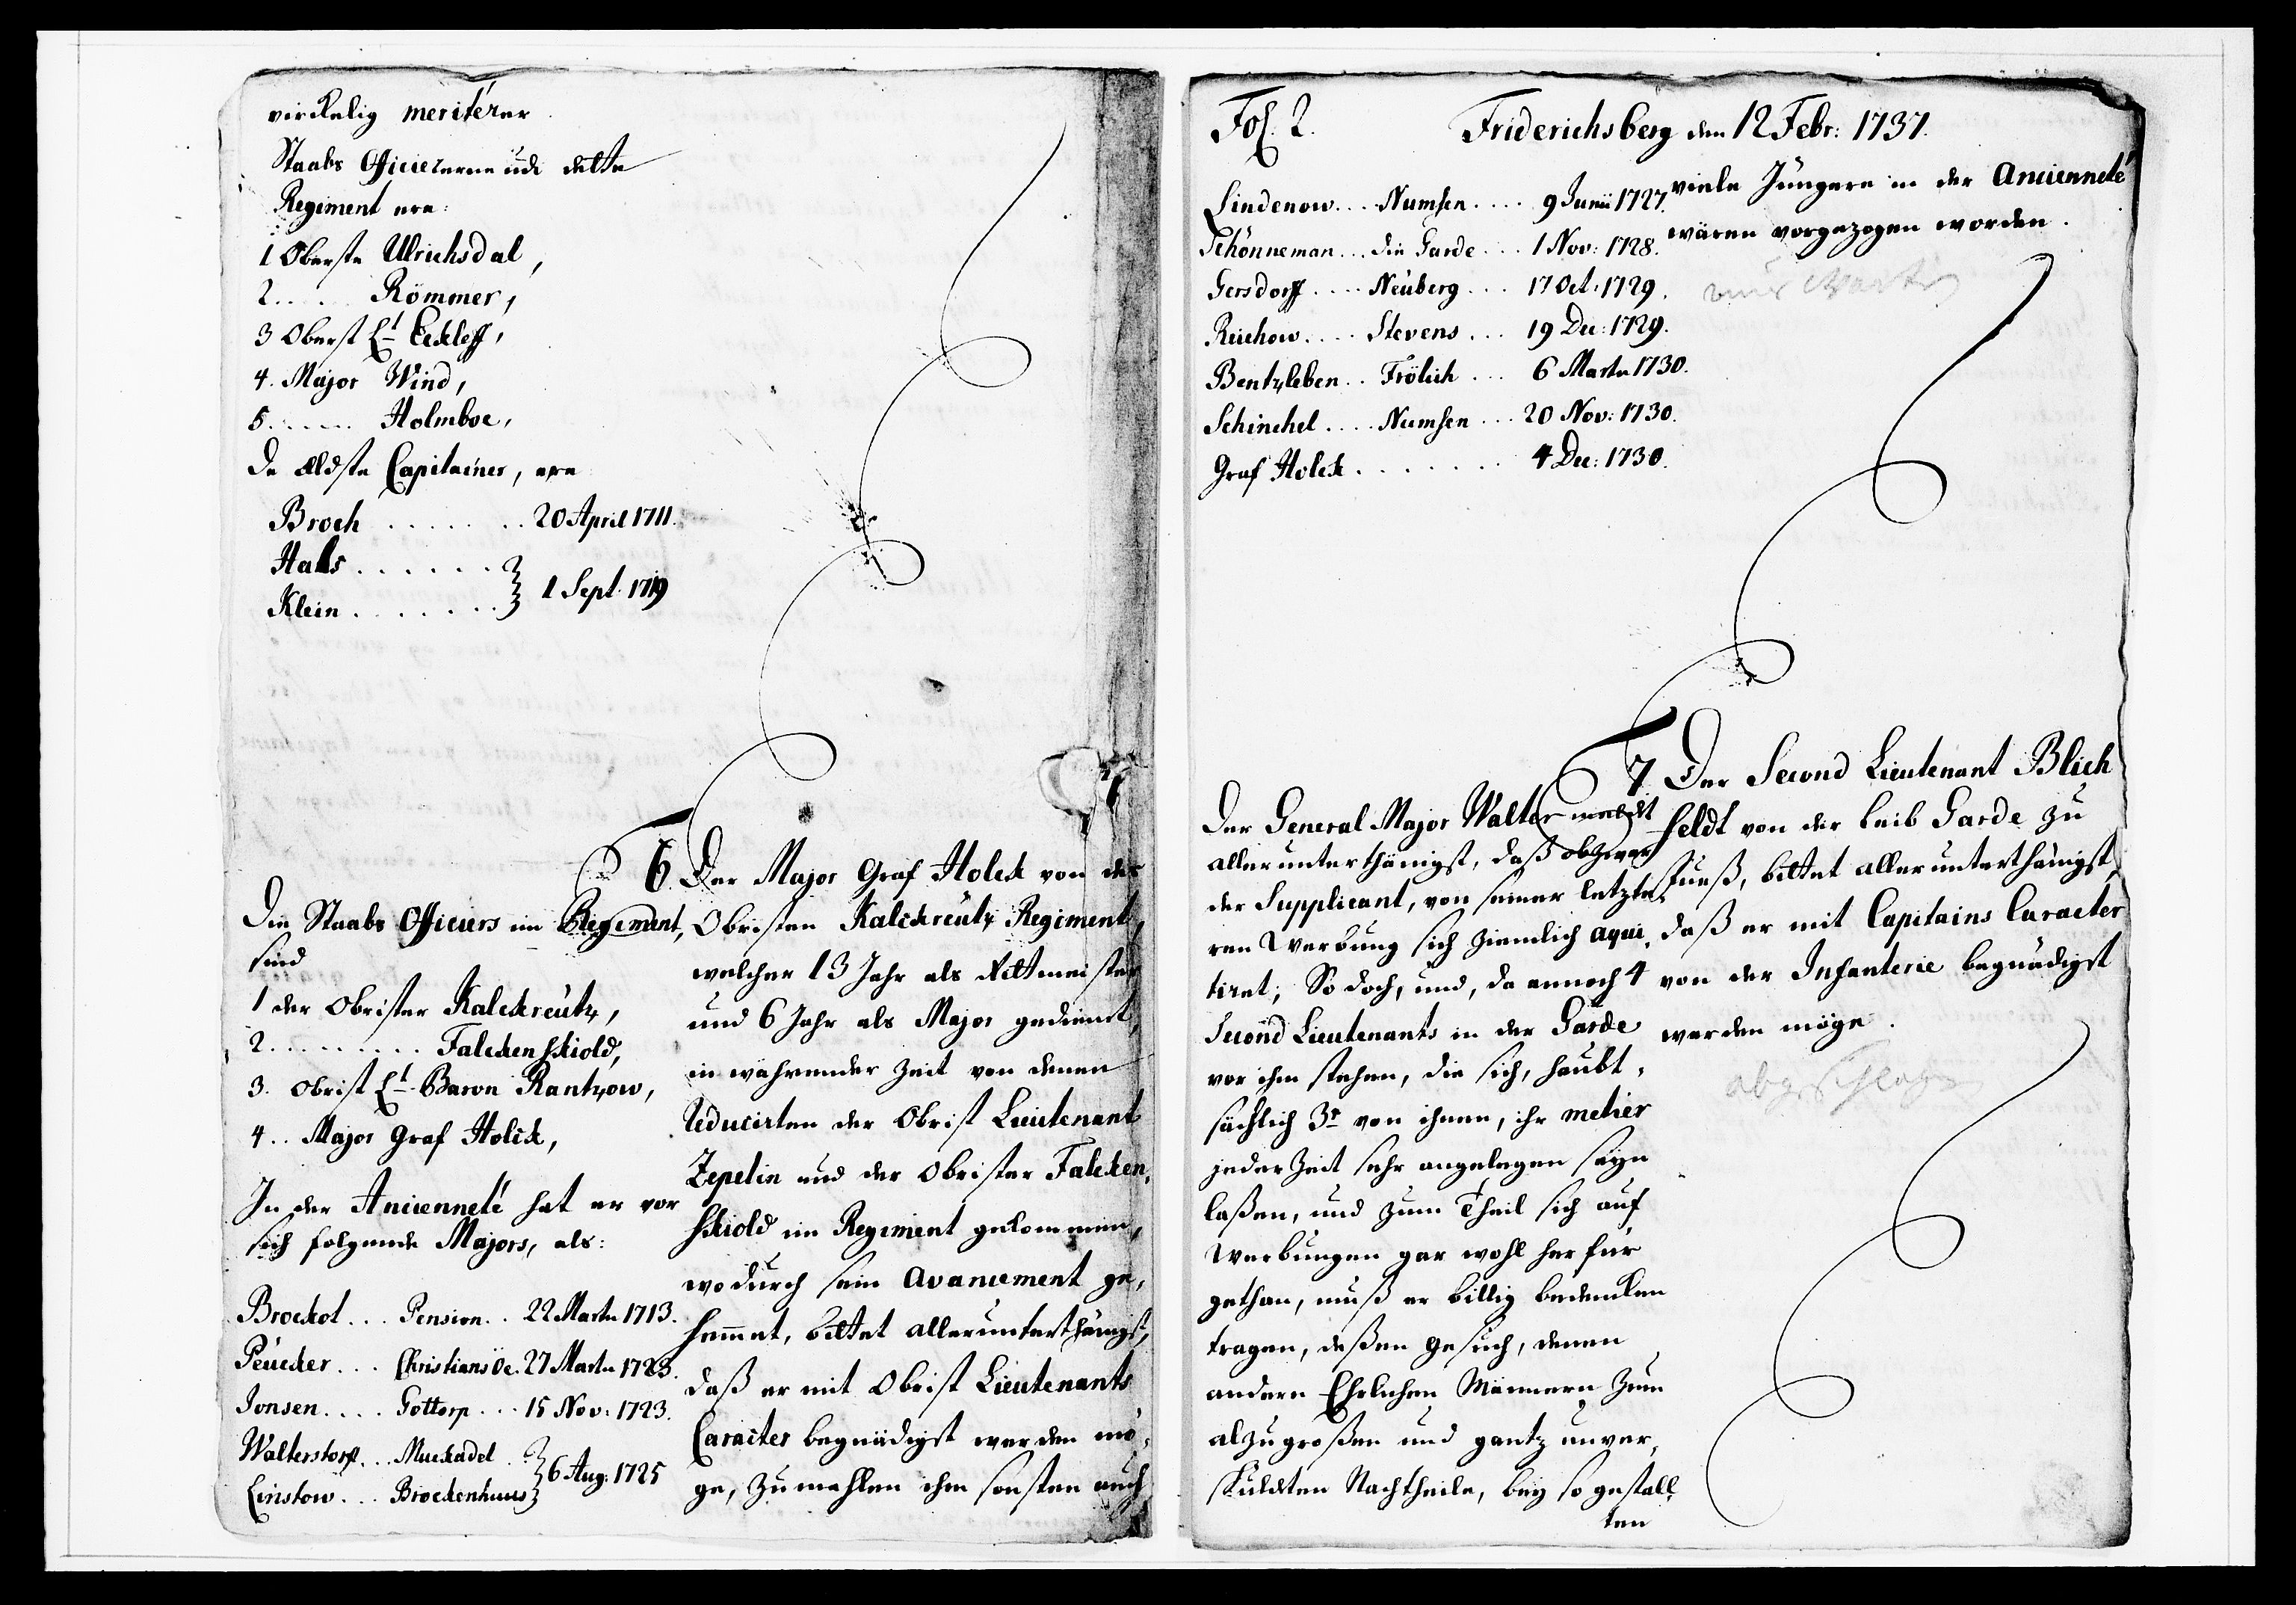 virkelig meriterer
Staabs Officiererne ude dette
Regiment ere:
1 Oberste Ulrichsdal,
2..... Römmer,
3 Oberst Lt Eckleff,
4. Major Wind,
5..... Holmboe,
De ældste Capitainer, ere
Broch ....... 20 April 1711.
Hals ......
Klein ....... } 1 Sept. 1719
Die Staabs Officiers im Regiment,
sind
1 der Obrister Kalckreutz,
2......... Falckenskiold,
3. Obrist Lt Baron Rantzow,
4.. Major Graf Holck,
In der Ancienneté hat er vor
sich folgende Majors, als:
Brockot... Pension.. 22 Martii 1713.
Peucker... Christiansöe. 27 Martii 1723.
Jonsen.... Gottorp... 15 Nov. 1723.
Walterstorff... Muckadel.
Linstow... Brockenhuus } 6 Aug: 1725
6 Der Major Graf Holck von des
Obristen Kalckreutz Regiment,
welcher 13 Jahr als Rittmeister
und 6 Jahr als Major gedienet,
in währender Zeit von denen
Reducirten der Obrist Lieutenant
Zepelin und der Obrister Falcken,
skiold im Regiment gekommen,
wodurch sein Avancement ge,
hem̄et, bittet allerunterthänigst,
daß er mit Obrist Lieutenants
Caracter begnädiget werden mö,
ge, zumahlen ihm sonsten auch
Fol. 2. Friderichsberg den 12 Febr: 1737.
Lindenow... Numsen.... 9 Junii 1727.
Schönneman... die Garde... 1 Nov: 1728.
Gersdorff.... Neuberg... 17 Oct. 1729.
Reichow.... Stevens... 19 Dec: 1729.
Bentzleben.. Frölich... 6 Martii 1730.
Schinckel.... Numsen... 20 Nov: 1730.
Graf Holck....... 4 Dec: 1730.
viele Jüngere in der Ancienneté
wären vorgezogen worden.
Der General Major Walter meldet
allerunterthänigst, daß obzwar
der Supplicant, von seiner letzte,
ren Werbung sich ziemlich aqui,
tiret; So doch, und, da annoch 4
Second Lieutenants in der Garde
vor ihm stehen, die sich, haubt,
sächlich 3r von ihnen, ihr metier
jeder Zeit sehr angelegen seyn
laßen, und zum Theil sich auf
Werbungen gar wohl herfür
gethan, muß er billig bedencken
tragen, deßen Gesuch, denen
andern Ehrlichen Männern zum
alzugroßen und gantz unver,
schuldten Nachtheile, bey so gestall,
ten
7 Der Second Lieutenant Blich
feldt von der Leib Garde zu
Fueß, bittet allerunterthänigst,
daß er mit Capitains Caracter
von der Infanterie begnädigst
werden möge.
abgeschlagen